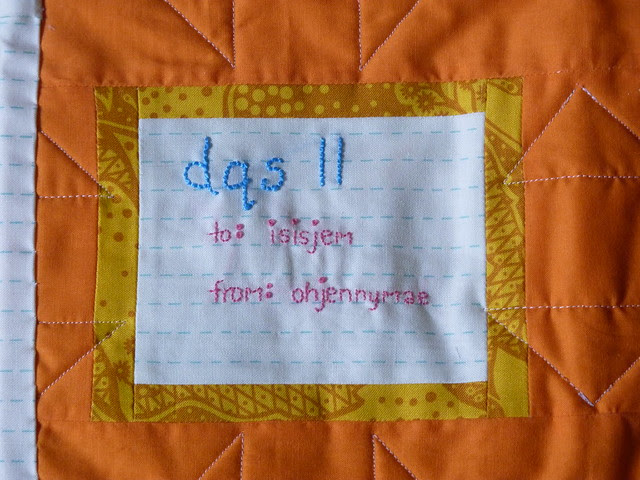 dqs 11
to: isisjem
from: ohjennymae